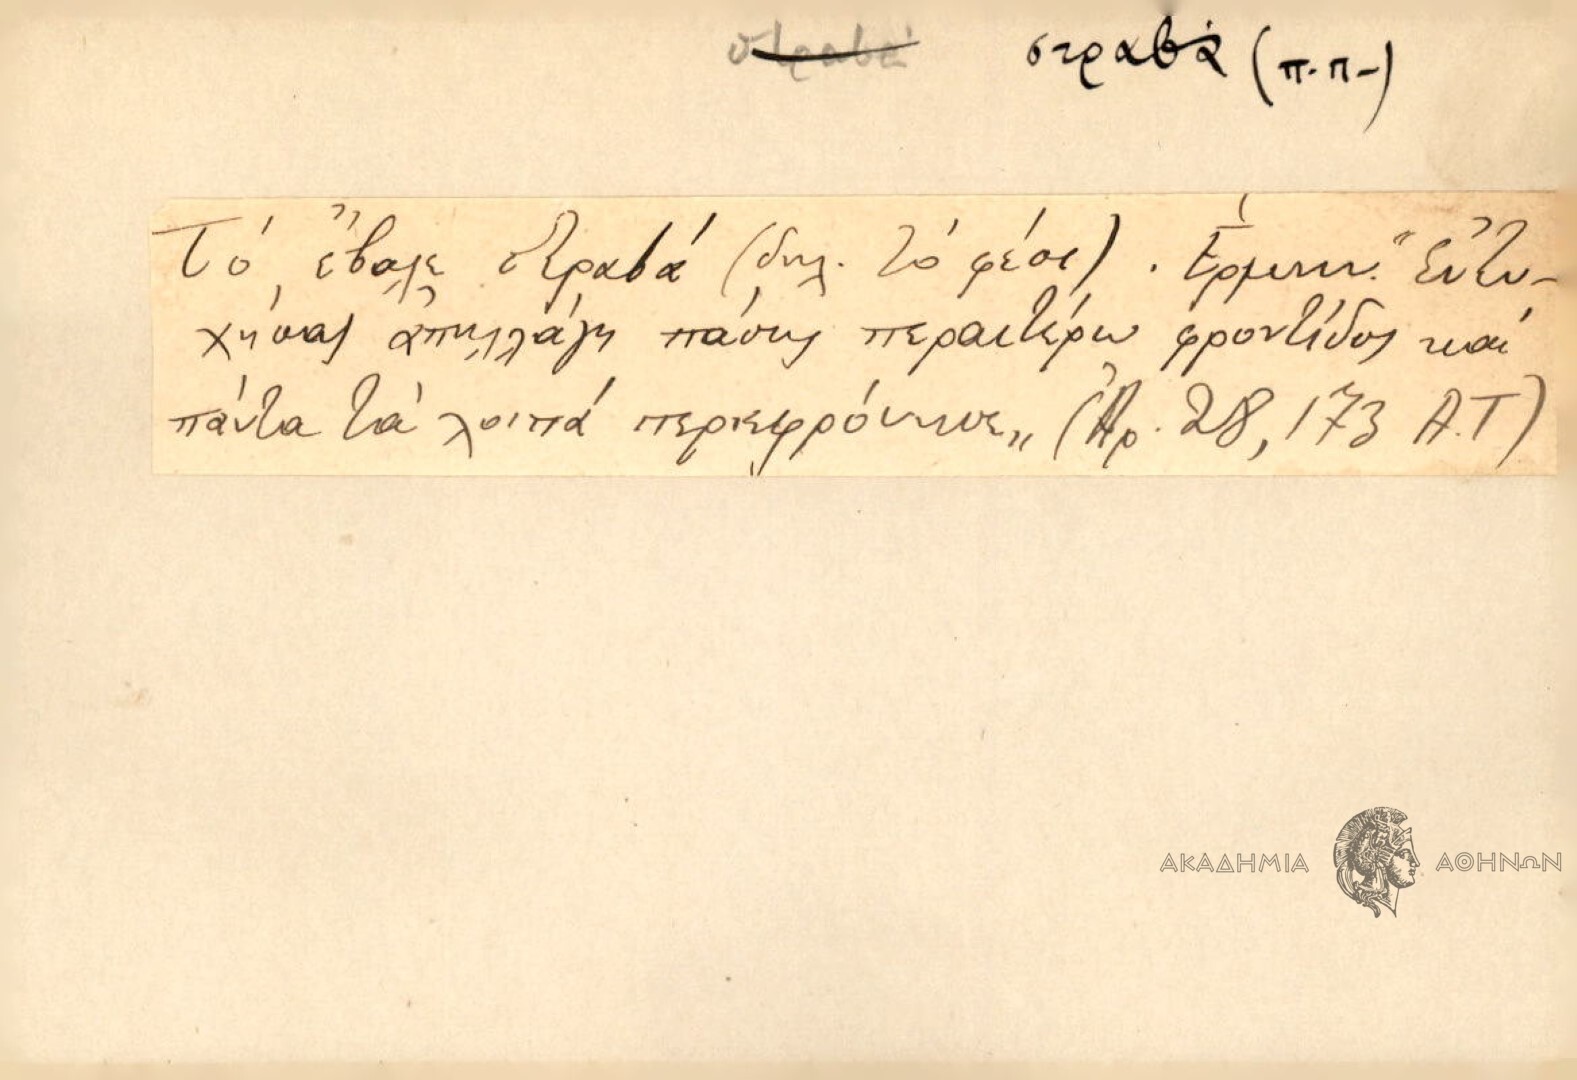 στραβά στραβά (π.π-)
Τό ἔβαλε στραβά (δηλ. τό φέσι). Ἑρμην. "Εὐτυ-
χήσας ἀπηλλάγη πάσης περαιτέρω φροντίδος καί
πάντα τά λοιπά περιεφρόνησε„ (Ἀρ. 28, 173 Α.Τ)
ΑΚΑΔΗΜΙΑ ΑΘΗΝΩΝ